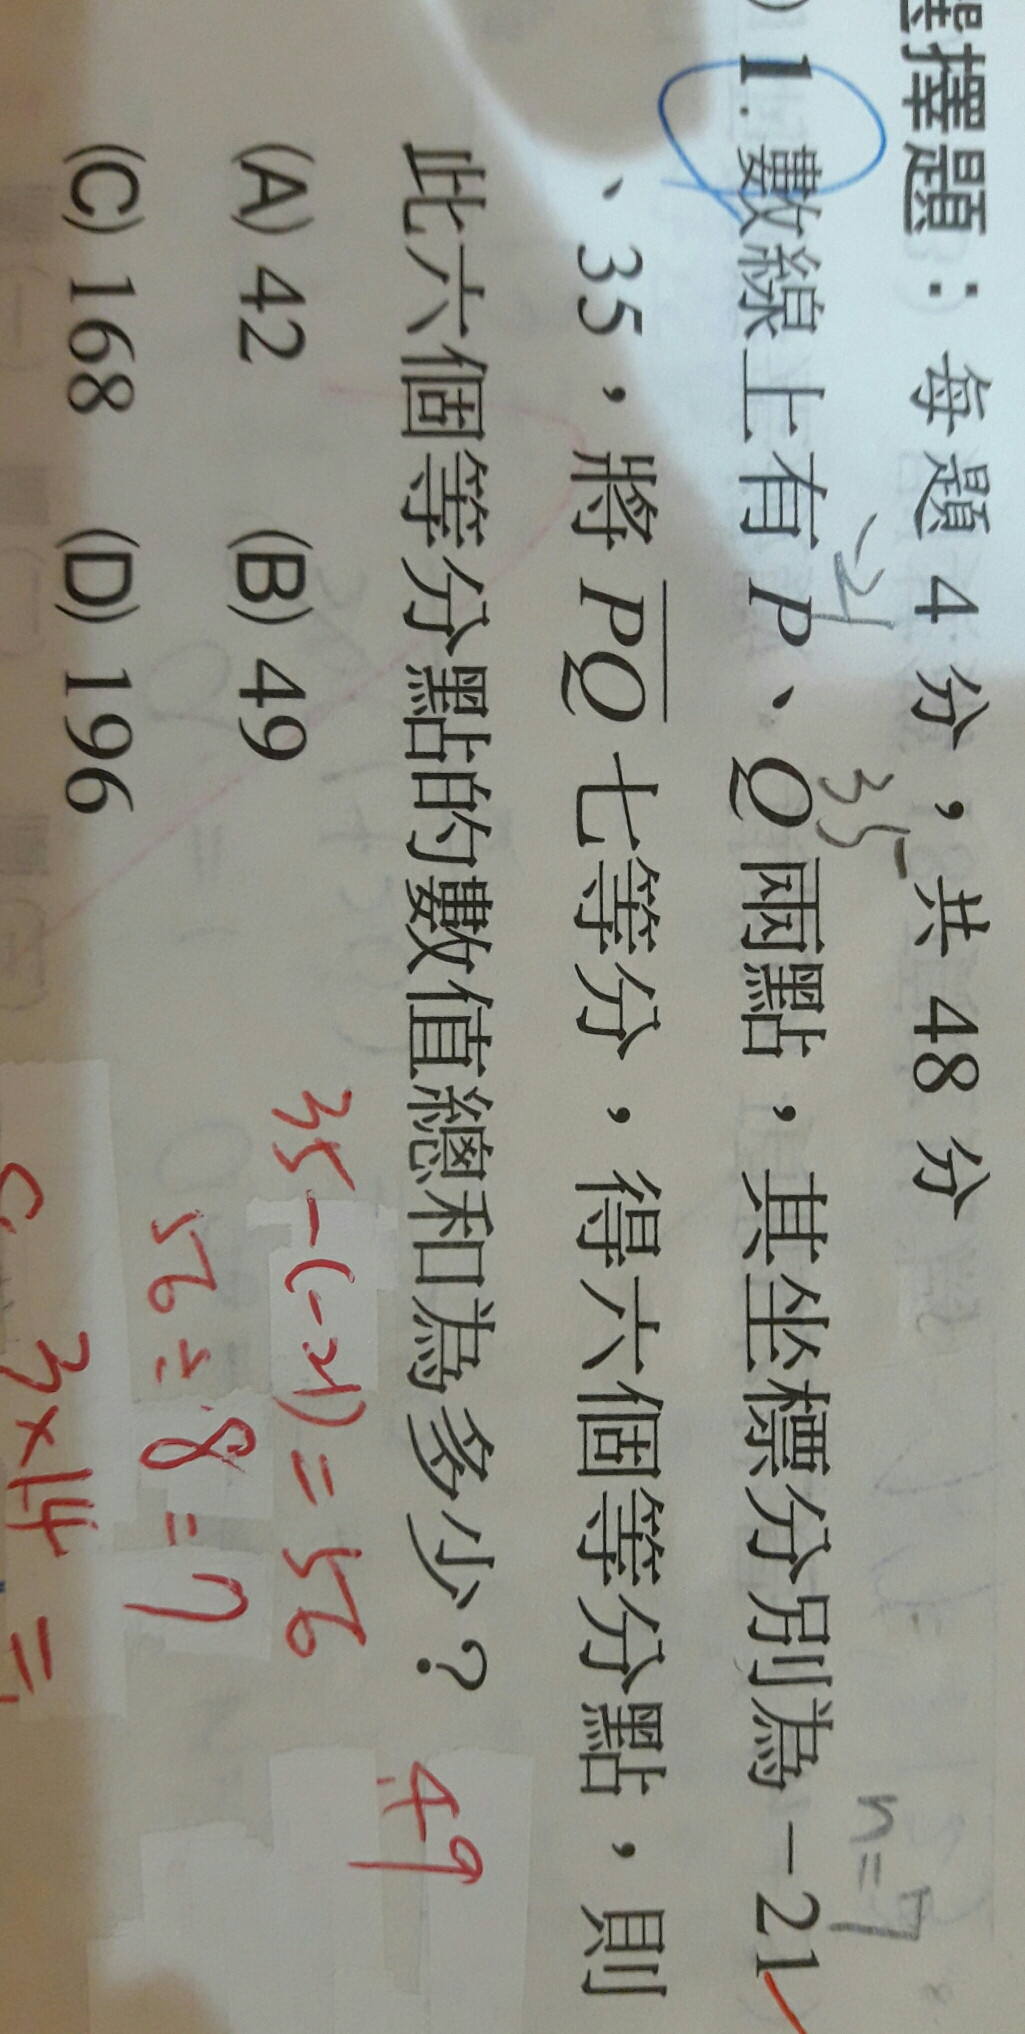 選擇題：每題 4 分，共 48 分
-21 35 n=7
) 1. 數線上有 P、Q 兩點，其坐標分別為 -21
、35，將 PQ 七等分，得六個等分點，則
此六個等分點的數值總和為多少？ 49
(A) 42 (B) 49 35-(-21)=56
(C) 168 (D) 196 56÷8=7
3×14=